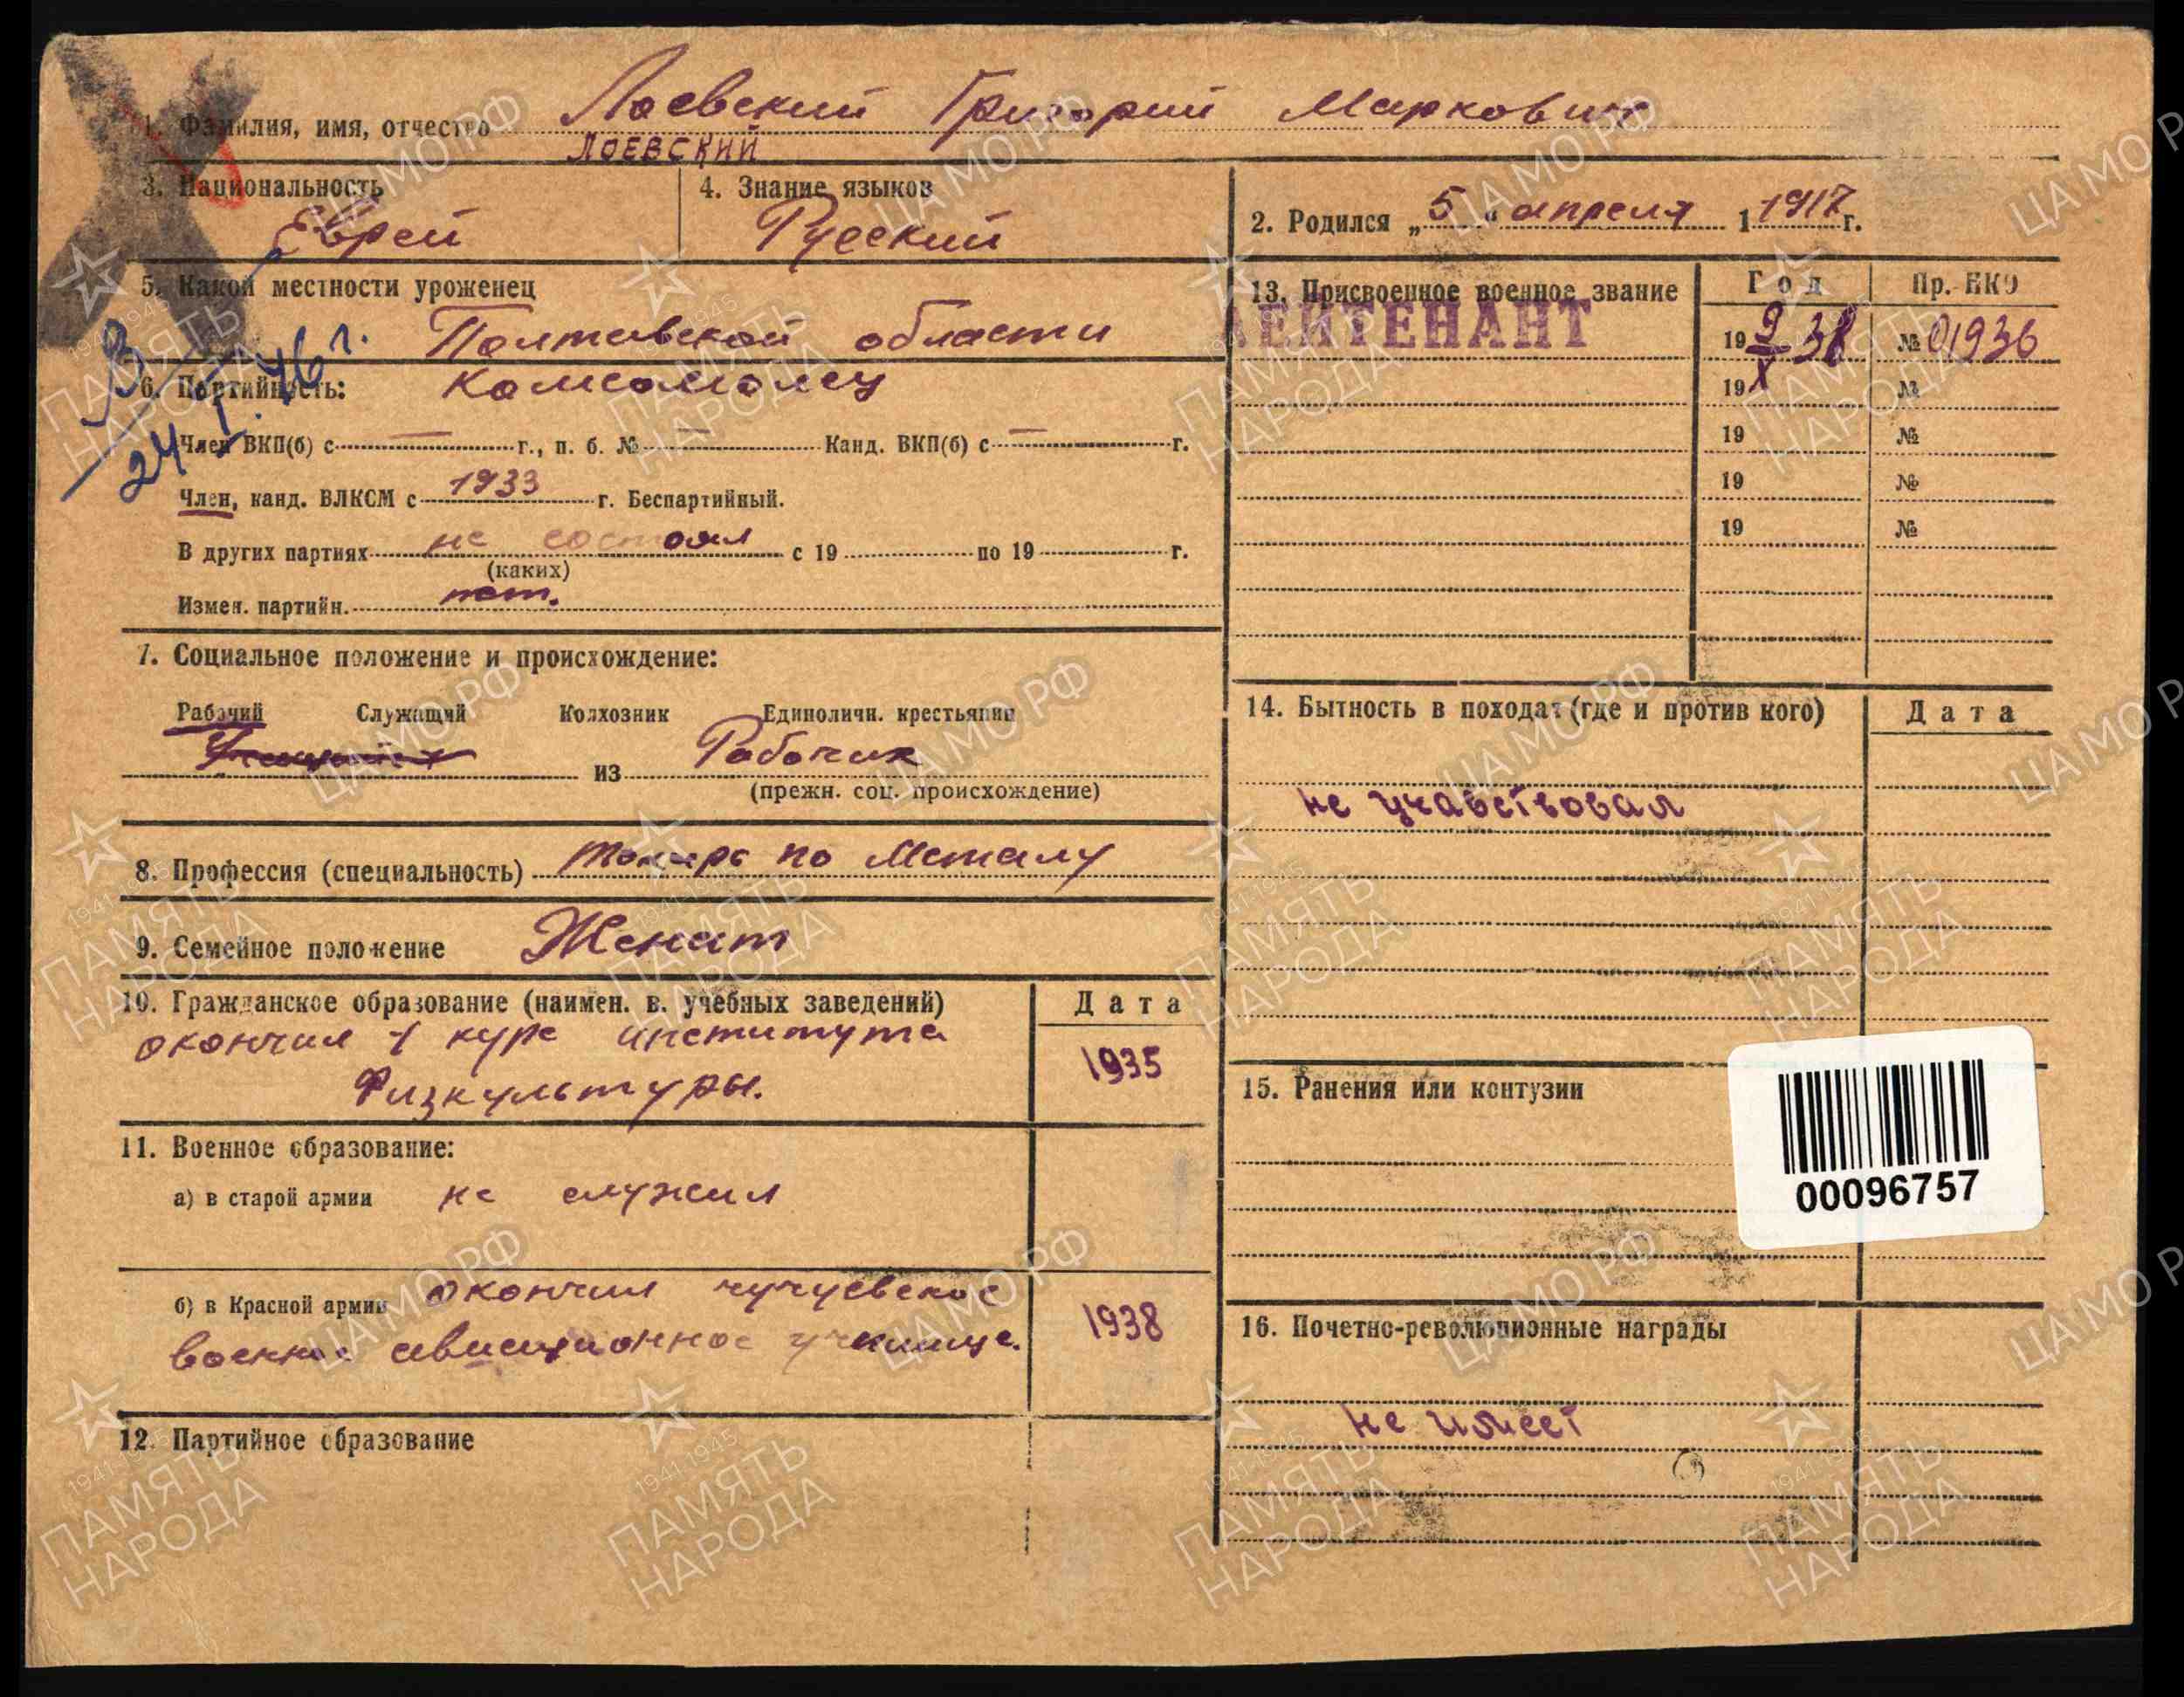 1. Фамилия, имя, отчество Лоевский Григорий Маркович
ЛОЕВСКИЙ
3. Национальность Еврей
4. Знание языков Русский
2. Родился „5“ апреля 1 1917 г.
5. Какой местности уроженец
Полтавской области
В 24 I. 46 г.
6. Партийность: Комсомолец
Член ВКП(б) с — г., п. б. № — Канд. ВКП(б) с — г.
Член, канд. ВЛКСМ с 1933 г. Беспартийный.
В других партиях не состоял с 19 по 19 г.
(каких)
Измен. партийн. нет.
7. Социальное положение и происхождение:
Рабочий Служащий Колхозник Единоличн. крестьянин
из Рабочих
(прежн. соц. происхождение)
8. Профессия (специальность) токарь по металу
9. Семейное положение Женат
10. Гражданское образование (наимен. в. учебных заведений) Дата
окончил 1 курс института
Физкультуры. 1935
11. Военное образование:
а) в старой армии не служил
б) в Красной армии окончил чугуевское
военное авиационное училище. 1938
12. Партийное образование
13. Присвоенное военное звание Год Пр. НКО
ЛЕЙТЕНАНТ 19 9/X 38 № 01936
19 №
19 №
19 №
19 №
14. Бытность в походах (где и против кого) Дата
не учавствовал
15. Ранения или контузии
00096757
16. Почетно-революционные награды
не имеет
ЦАМО РФ
1941-1945
ПАМЯТЬ
НАРОДА